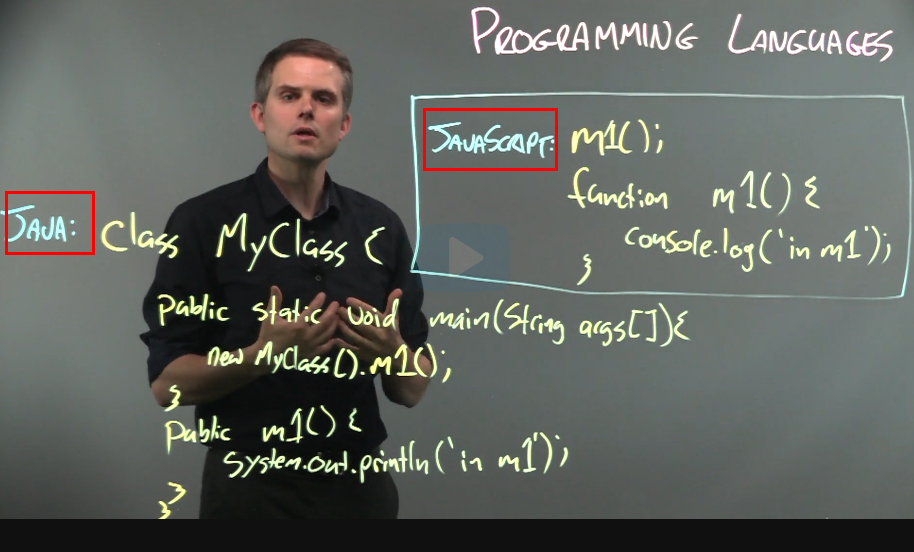 PROGRAMMING LANGUAGES
JAVASCRIPT: m1();
function m1() {
console.log('in m1');
}
JAVA: class MyClass {
public static void main(String args[]){
new MyClass().m1();
}
public m1() {
System.out.println('in m1');
}
}